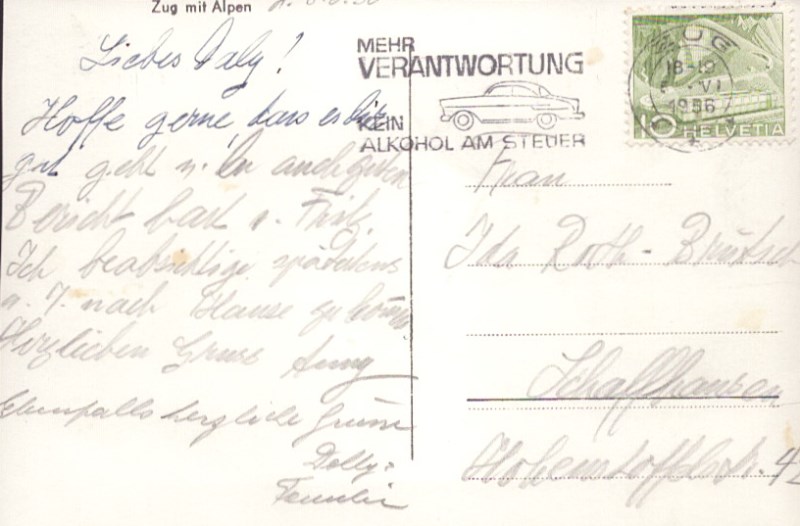 Zug mit Alpen
Liebes Daly!
Hoffe gerne, dass es Dir
gut geht u. Du auch guten
Bericht hast v. Fritz.
Ich beabsichtige spätestens
a. 7. nach Hause zu kommen
Herzlichen Gruss
Ebenfalls herzliche Grüsse
Dolly
MEHR
VERANTWORTUNG
KEIN
ALKOHOL AM STEUER
ZUG
18-19
VI
1956
10 HELVETIA
Frau
Ida Roth-Brütsch
Schaffhausen
Hohenstoffelstr. 42